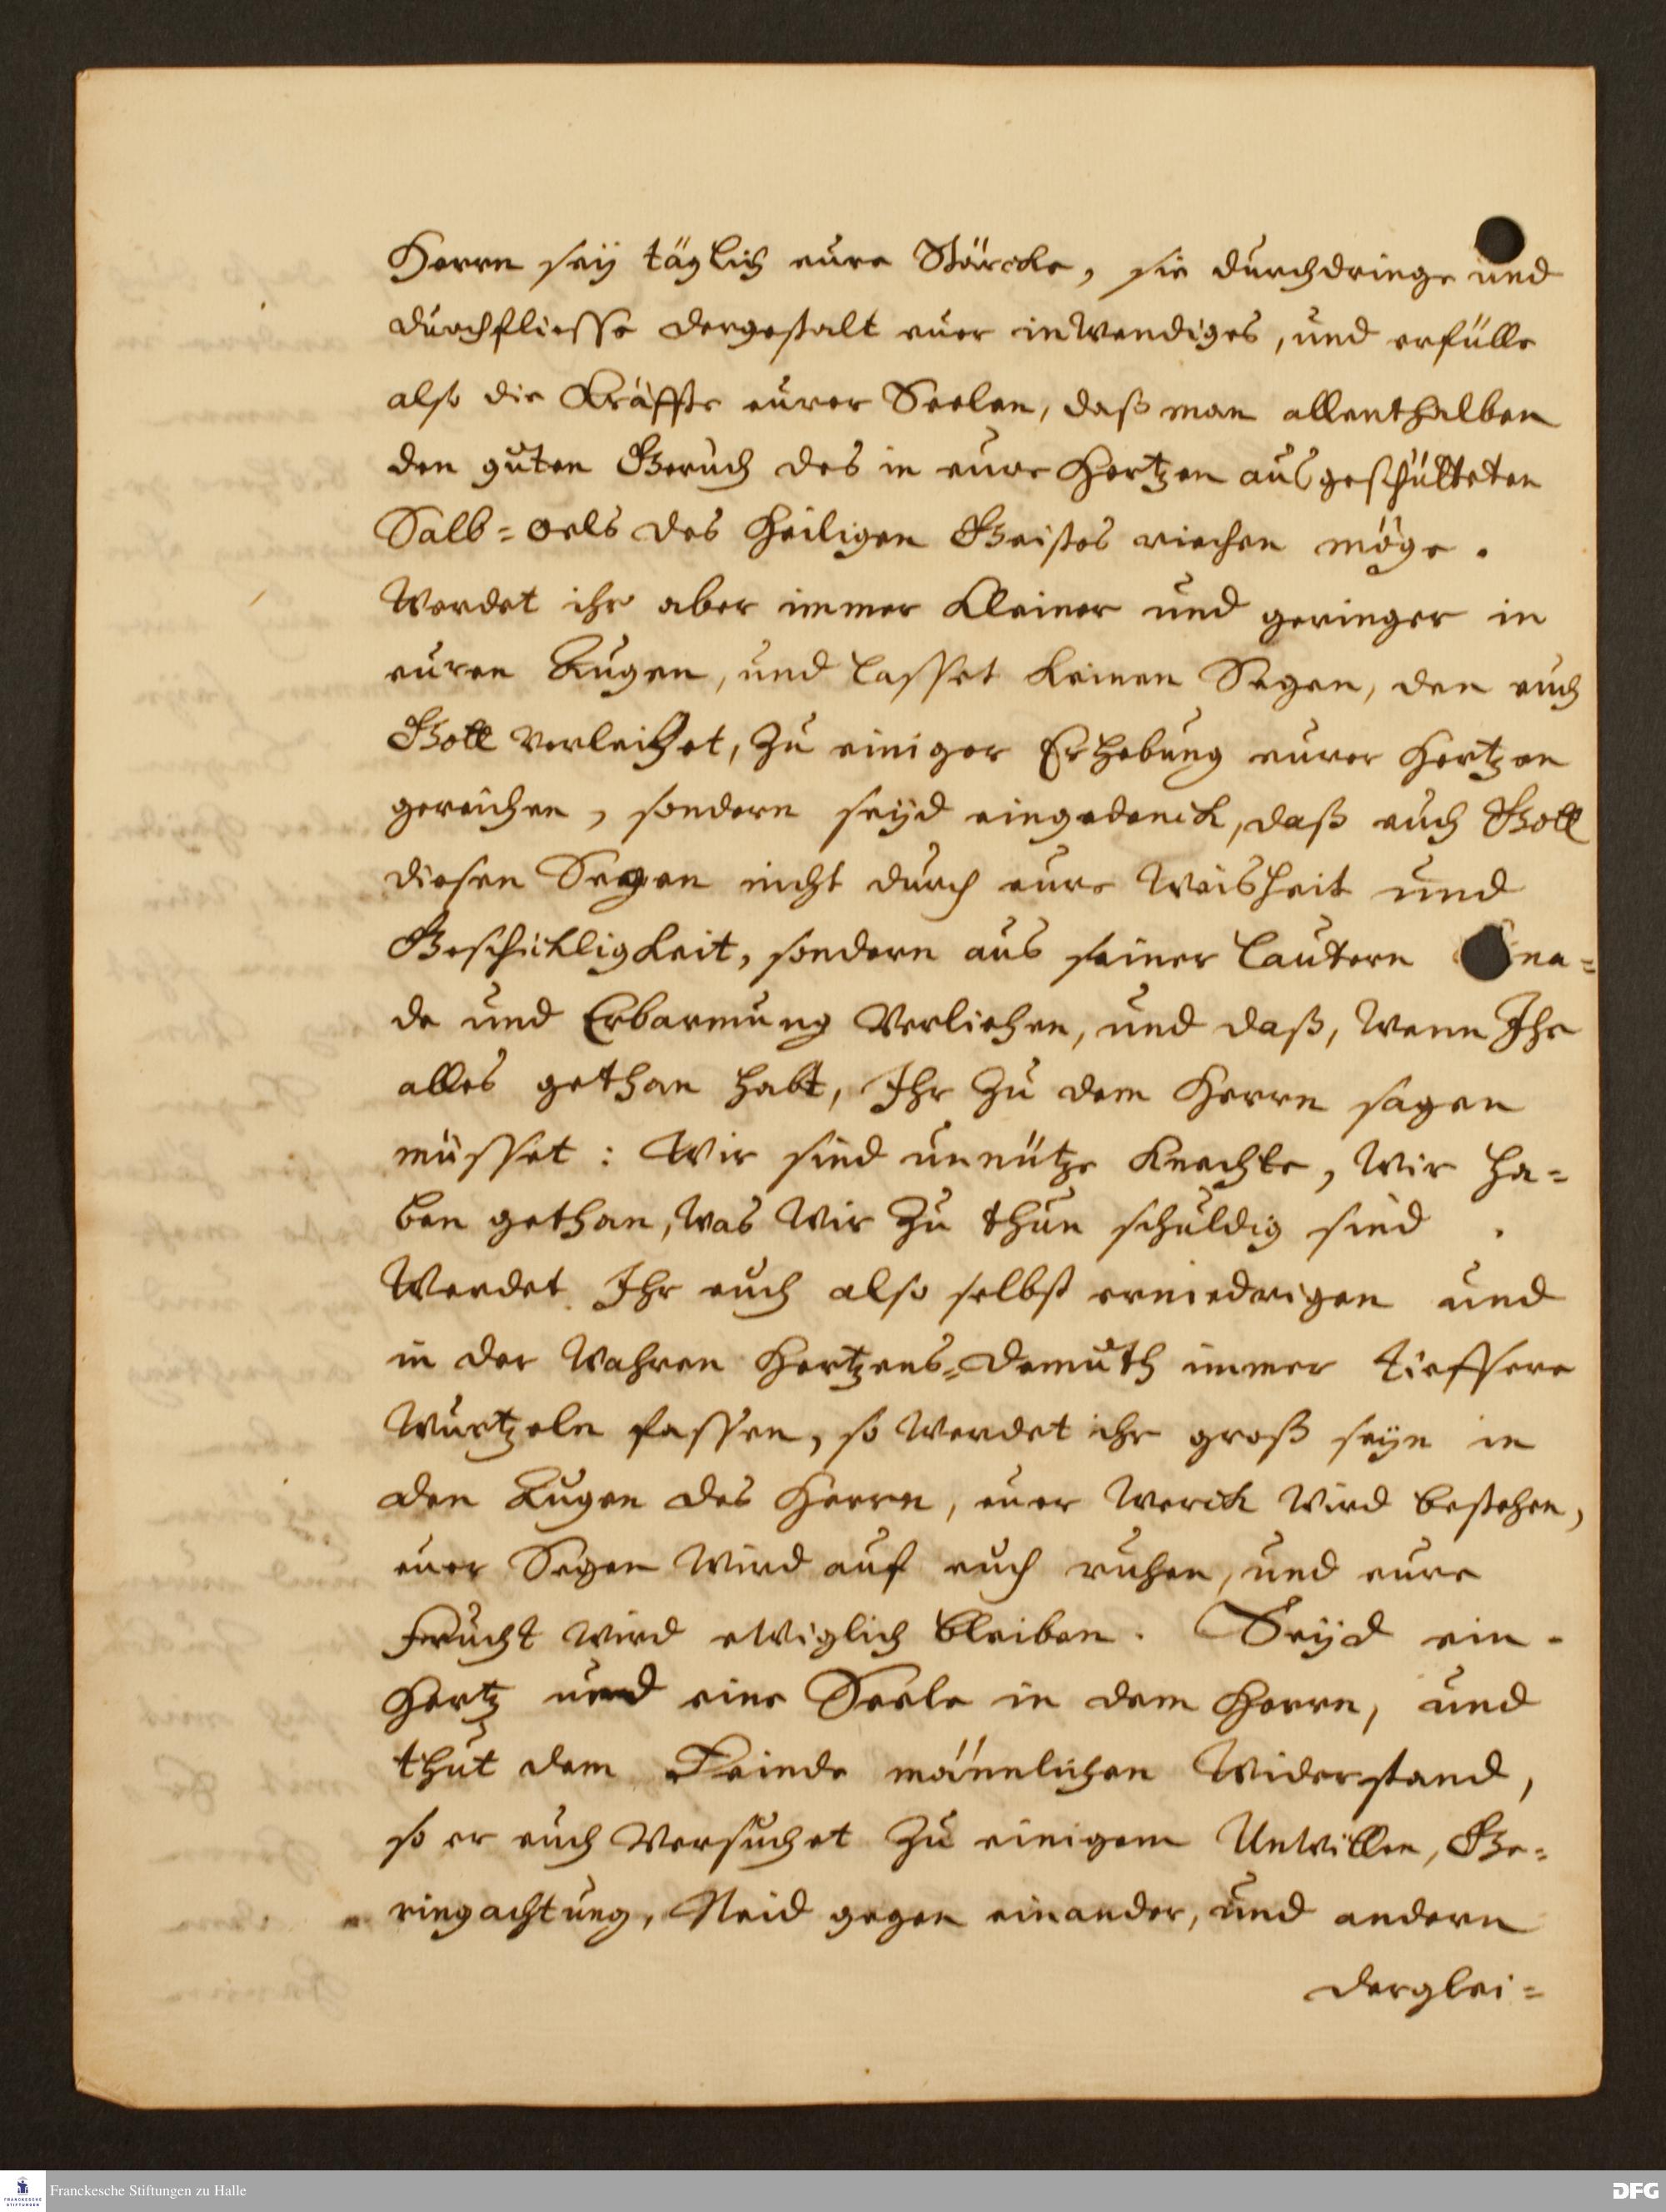 Herrn seÿ täglich eure Stärcke, sie durchdringe und
durchfliesse dergestalt euer inwendiges, und erfülle
also die Kräffte eurer Seelen, daß man allenthalben
den guten Geruch des in eure Hertzen ausgeschütteten
Salb=oels des Heiligen Geistes riechen möge.
Werdet ihr aber immer kleiner und geringer in
euren Augen, und lasset keinen Segen, den euch
Gott verleihet, zu einiger Erhebung eurer Hertzen
gereichen, sondern seÿd eingedenck, daß euch Gott
diesen Segen nicht durch eure Weisheit und
Geschickligkeit, sondern aus seiner lautern Gna=
de und Erbarmung verliehen, und daß, wenn Ihr
alles gethan habt, Ihr zu dem Herrn sagen
müsset: Wir sind unnütze Knechte, wir ha=
ben gethan, was wir zu thun schuldig sind.
Werdet Ihr euch also selbst erniedrigen und
in der wahren Hertzens=Demuth immer tieffere
Wurtzeln fassen, so werdet ihr groß seÿn in
den Augen des Herrn, euer Werck wird bestehen,
euer Segen wird auf euch ruhen, und eure
Frucht wird ewiglich bleiben. Seÿd ein
Hertz und eine Seele in dem Herrn, und
thut dem Feinde männlichen Widerstand,
so er euch versuchet zu einigem Unwillen, Ge=
ringachtung, Neid gegen einander, und andern
derglei=
Franckesche Stiftungen zu Halle
FRANCKESCHE
STIFTUNGEN
DFG